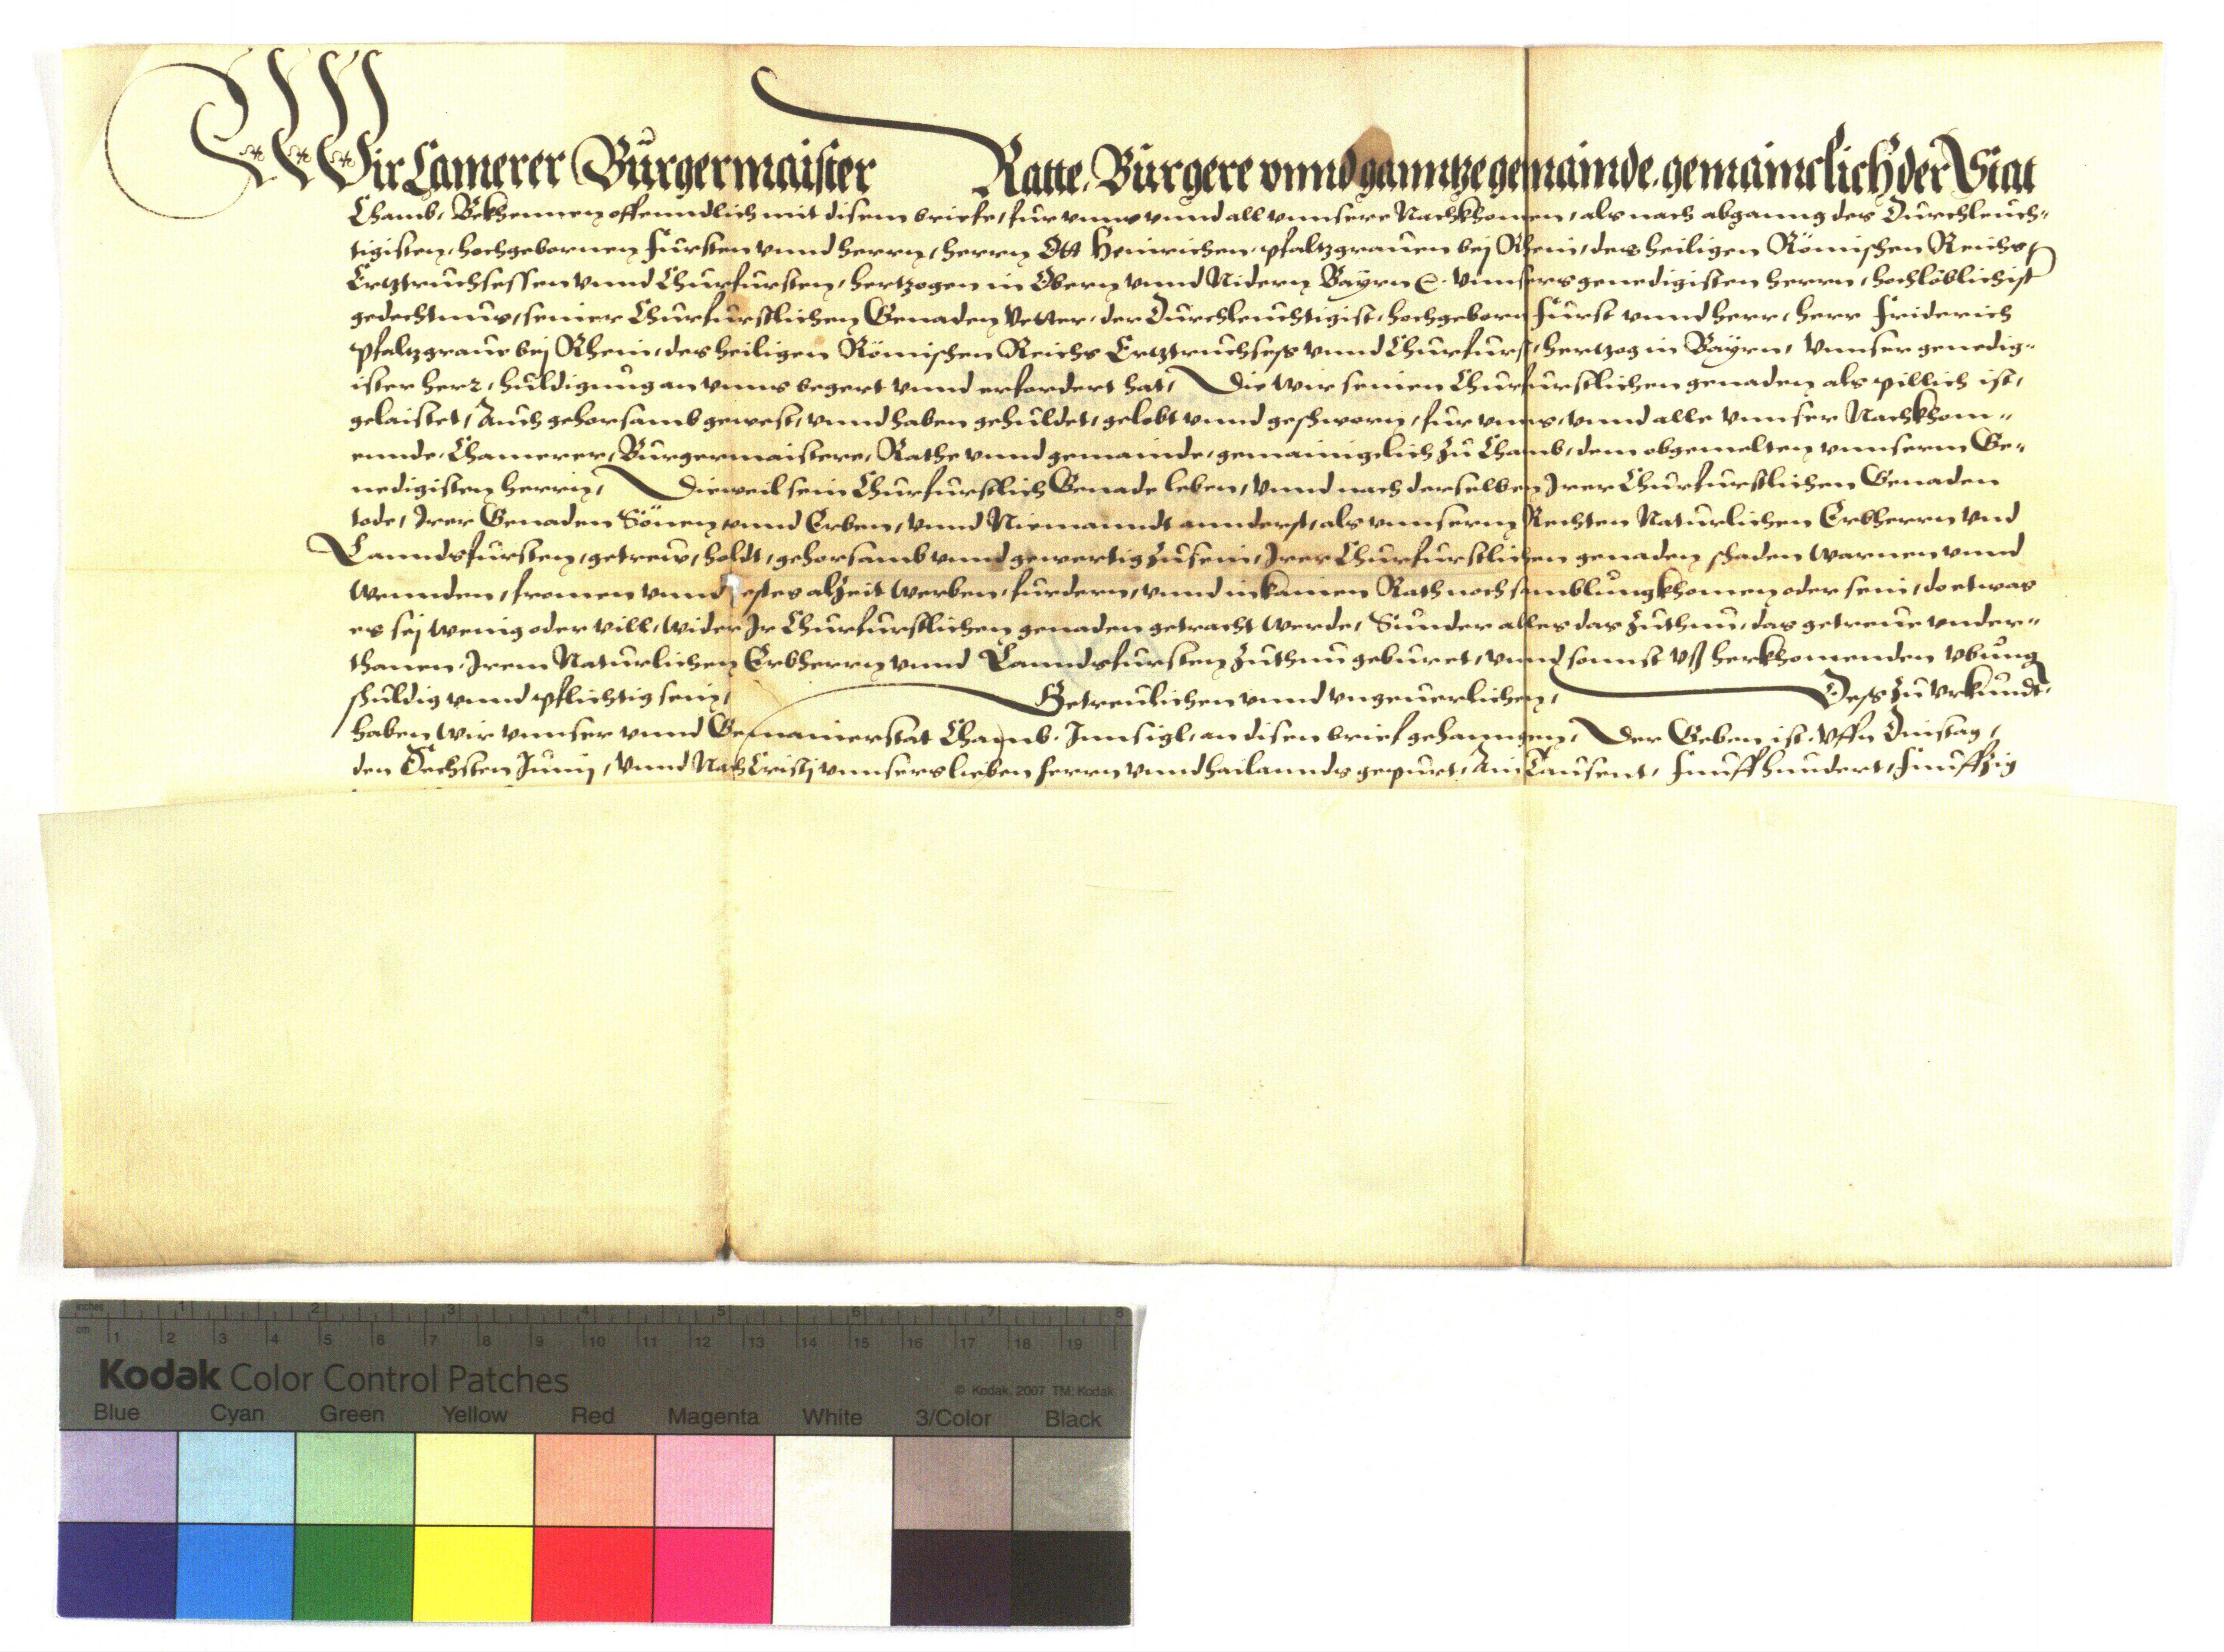 Wir Camerer Burgermaister Ratte, Burgere vnnd ganntze gemainde, gemainclich der Stat
Chamb, Bekhennen offenndlich mit disem briefe, fur vnns vnnd all vnnsere Nachkhomen, als nach abganng des Durchleuch-
tigisten, hochgebornen fursten vnnd herrn, herrn Ott Heinrichen, pfaltzgrauen bej Rhein, des heiligen Römischen Reichs
Ertztruchsessen vnnd Churfursten, hertzogen in Obern vnnd Nidern Bayrn &. Vnnsers genedigisten herrn, hochlöblichist
gedechtnus, seiner Churfurstlichen Genaden Vetter, der Durchleuchtigist, hochgeborn furst vnnd herr, herr friderich
pfaltzgraue bej Rhein, des heiligen Römischen Reichs Ertztruchsess vnnd Churfurst, hertzog in Bayrn, Vnnser genedig-
ister herr, huldigung an vnns begert vnnd erfordert hat, Die wir seinen Churfurstlichen genaden als pillich ist,
gelaistet, Auch gehorsamb gewest, vnnd haben gehuldet, gelobt vnnd geschworn, fur vnns, vnnd alle vnnser Nachkhom-
ennde, Chamerer, Burgermaistere, Rathe vnnd gemainde, gemainigclich zu Chamb, dem obgemelten vnnserm Ge-
nedigisten herrn, Dieweil sein Churfurstlich Genade leben, vnnd nach derselben Irer Churfurstlichen Genaden
tode, Irer Genaden Sönen vnnd Erben, vnnd Niemanndt annderst, als vnnserm Rechten Naturlichen Erbherrn vnd
Lanndsfursten, getrew, holdt, gehorsamb vnnd gewertig zusein, Irer Churfurstlichen genaden schaden warnen vnnd
wennden, fromen vnnd estes alzeit werben, furdern, vnnd in kainen Rath noch samblung khomen oder sein, do etwas
es sej wenig oder vill, wider Ir Churfurstlichen genaden getracht werde, Sunder alles das zuthun, das getreue vnder-
thanen, Irem Naturlichen Erbherrn vnnd Lanndsfursten zuthun geburet, vnnd sonnst vß herkhomenden vbung
schuldig vnnd pflichtig sein, Getreulichen vnnd vngeuerlichen, Dess zu vrkundt,
haben wir vnnser vnnd Gemainerstat Chamb, Innsigl, an disen brief gehanngen, Der Geben ist, vffn Dinstag,
den Sechsten Junij, vnnd Nach Cristj vnnsers lieben herrn vnnd hailannds gepurt, Ain Tausent, funffhundert, funffzig
inches 1 2 3 4 5 6 7 8
cm 1 2 3 4 5 6 7 8 9 10 11 12 13 14 15 16 17 18 19
Kodak Color Control Patches
© Kodak, 2007 TM: Kodak
Blue Cyan Green Yellow Red Magenta White 3/Color Black